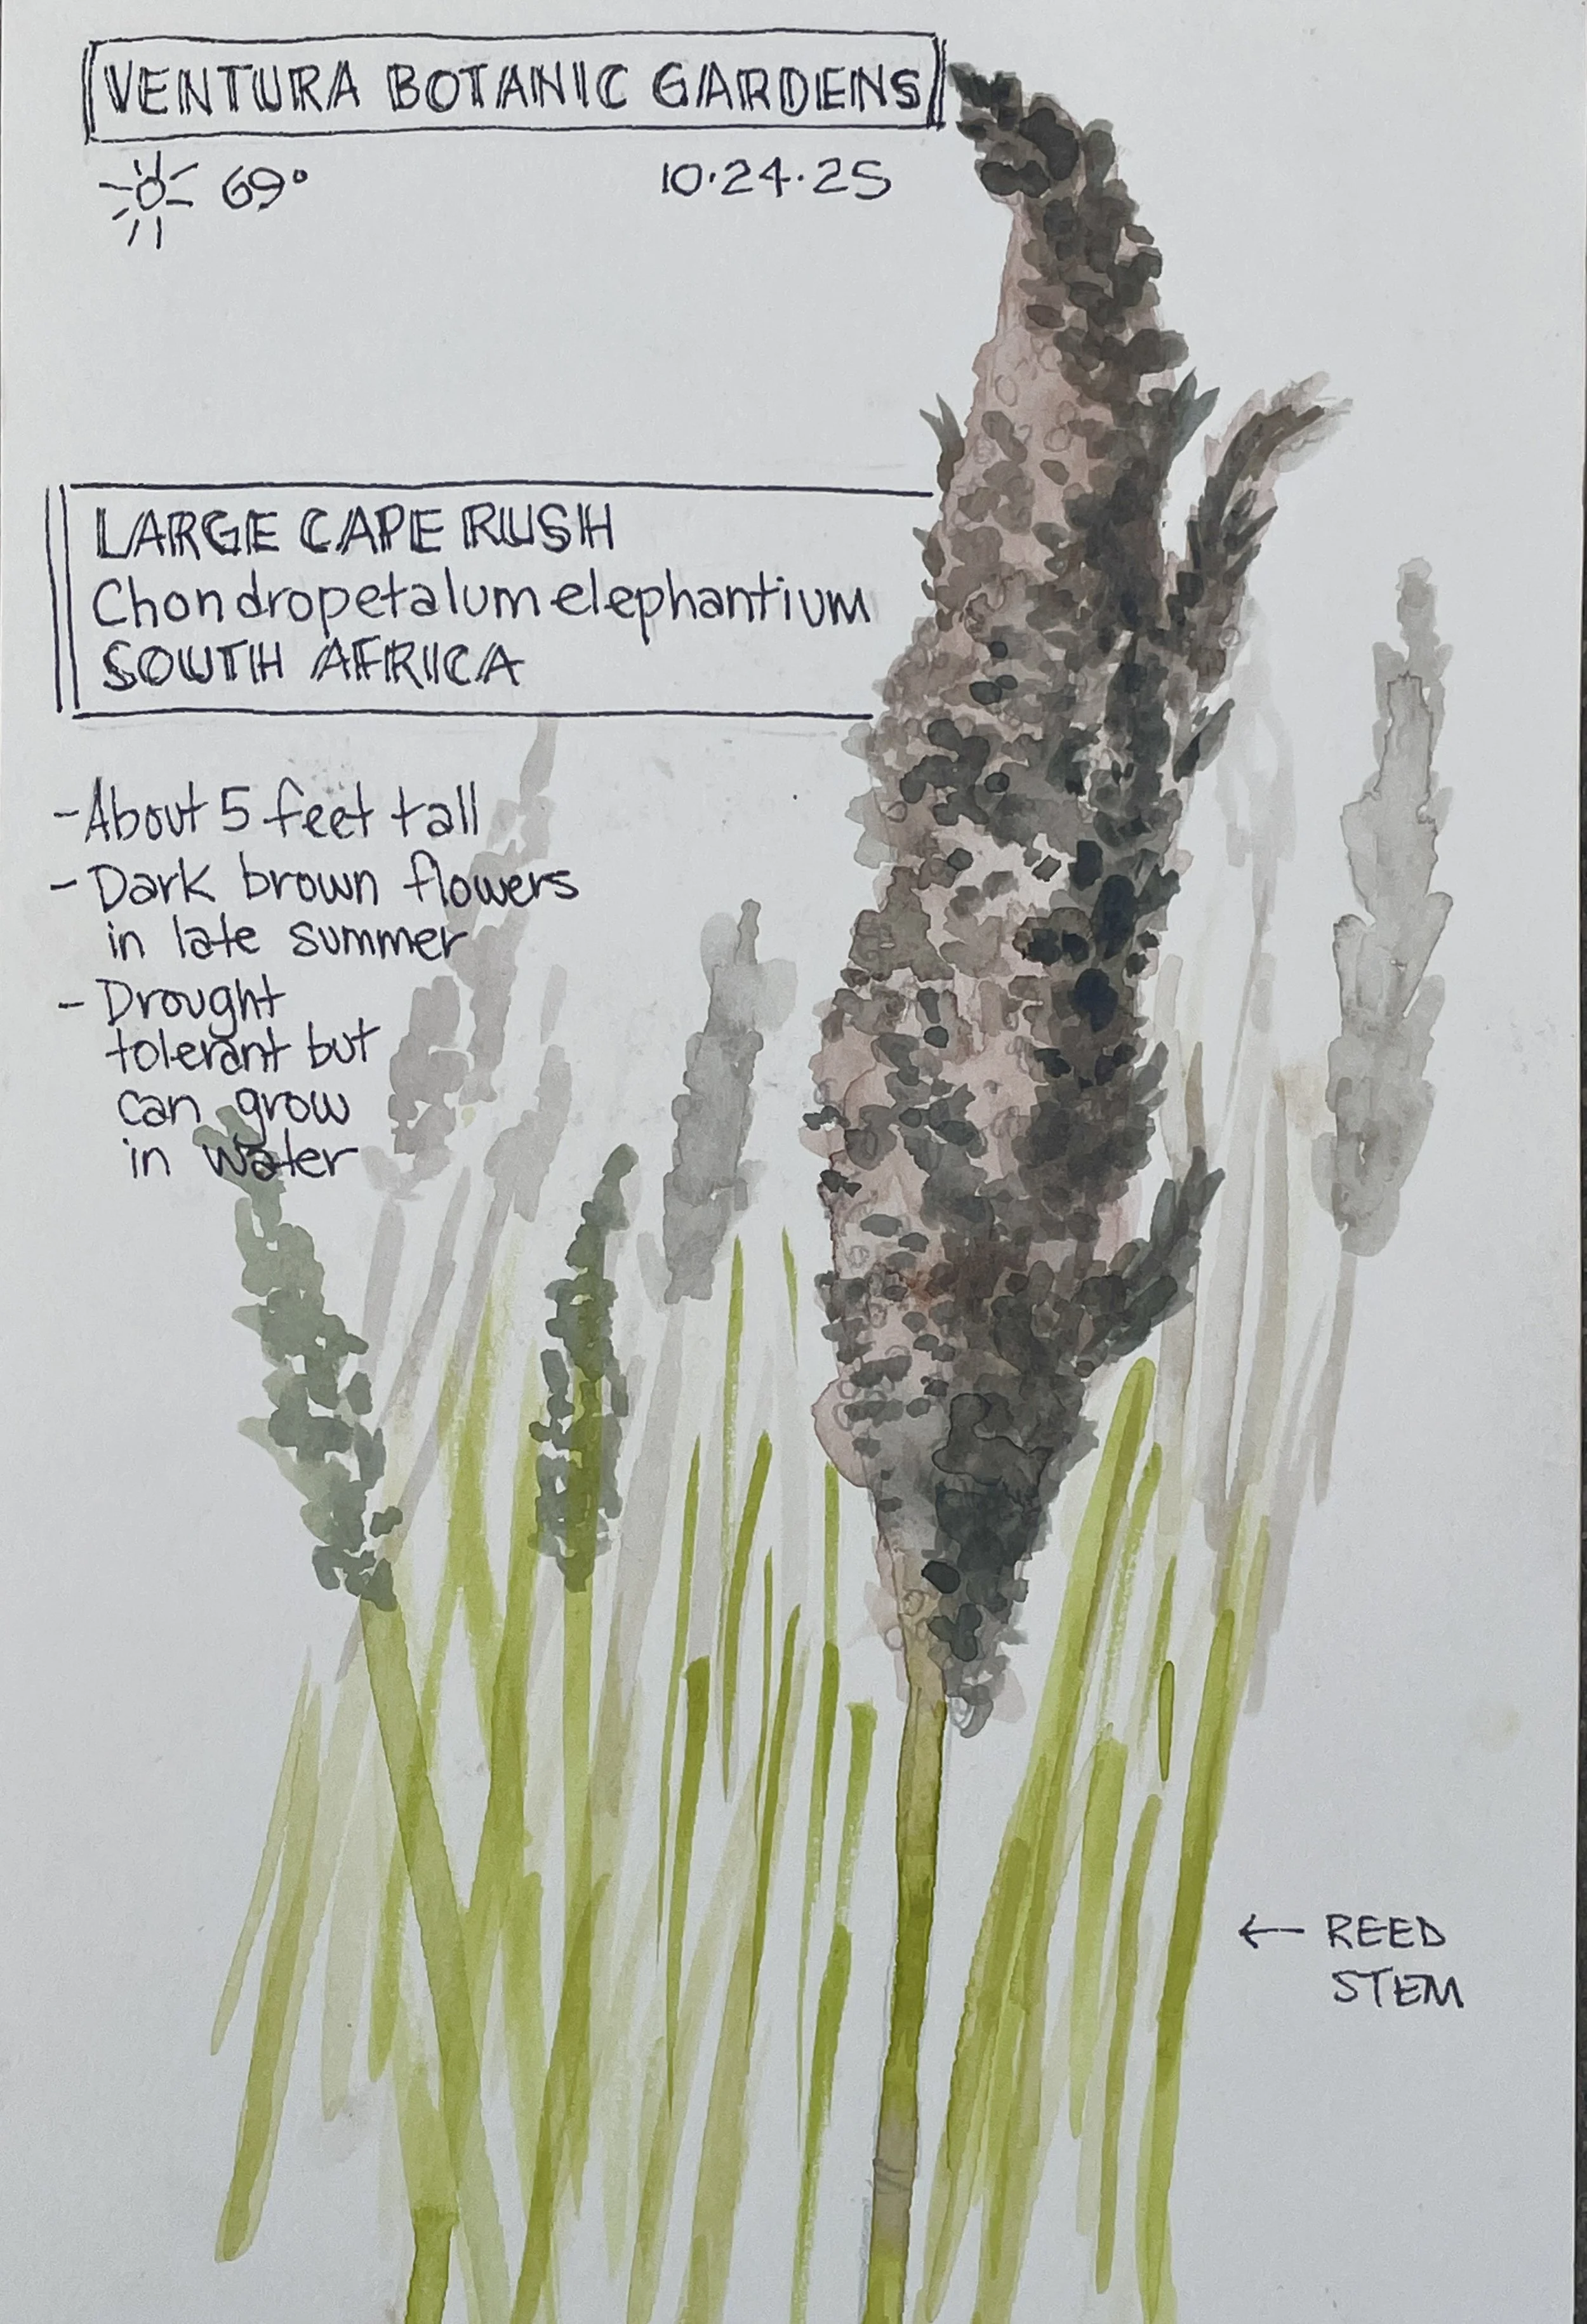 VENTURA BOTANIC GARDENS
69° 10·24·25
LARGE CAPE RUSH
Chondropetalum elephantium
SOUTH AFRICA
- About 5 feet tall
- Dark brown flowers
in late summer
- Drought
tolerant but
can grow
in water
← REED
STEM